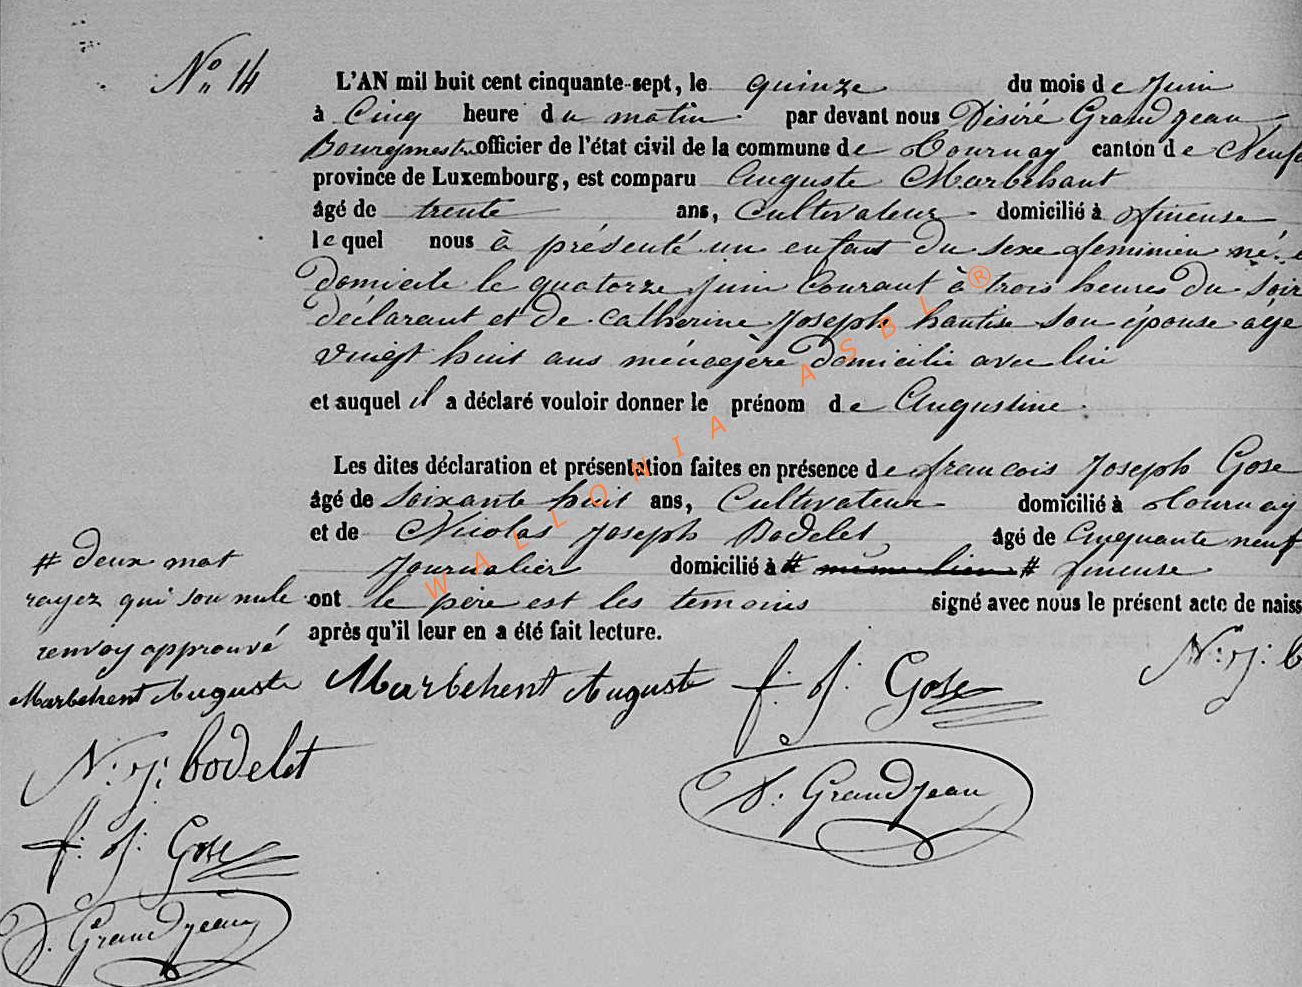 N° 14
L'AN mil huit cent cinquante-sept, le quinze du mois de Juin
à Cinq heure du matin par devant nous Désiré Grandjean
Bourgmestre officier de l'état civil de la commune de Tournay canton de Neufc
province de Luxembourg, est comparu Auguste Marbehant
âgé de trente ans, Cultivateur domicilié à fineuse
lequel nous à présenté un enfant du sexe feminien né
domicile le quatorze Juin Courant à trois heures du soir
déclarant et de Catherine Joseph hautise son épouse agé
vingt huit ans ménagère Domicilié avec lui
et auquel il a déclaré vouloir donner le prénom de Augustine
Les dites déclaration et présentation faites en présence de francois Joseph Gose
âgé de soixante huit ans, Cultivateur domicilié à Tournay
et de Nicolas Joseph Bodelet âgé de Cinquante neuf
Journalier domicilié à # même lieu # fineuse
ont le père est les temoins signé avec nous le présent acte de naiss
après qu'il leur en a été fait lecture.
# deux mot
rayez qui son nule
renvoy approuvé
Marbehent Auguste
N: J: bodelet
f: J: Gose
D. Grandjean
Marbehent Auguste
f: J: Gose
N: J: b
D. Grandjean
WALLONIA ASBL ®